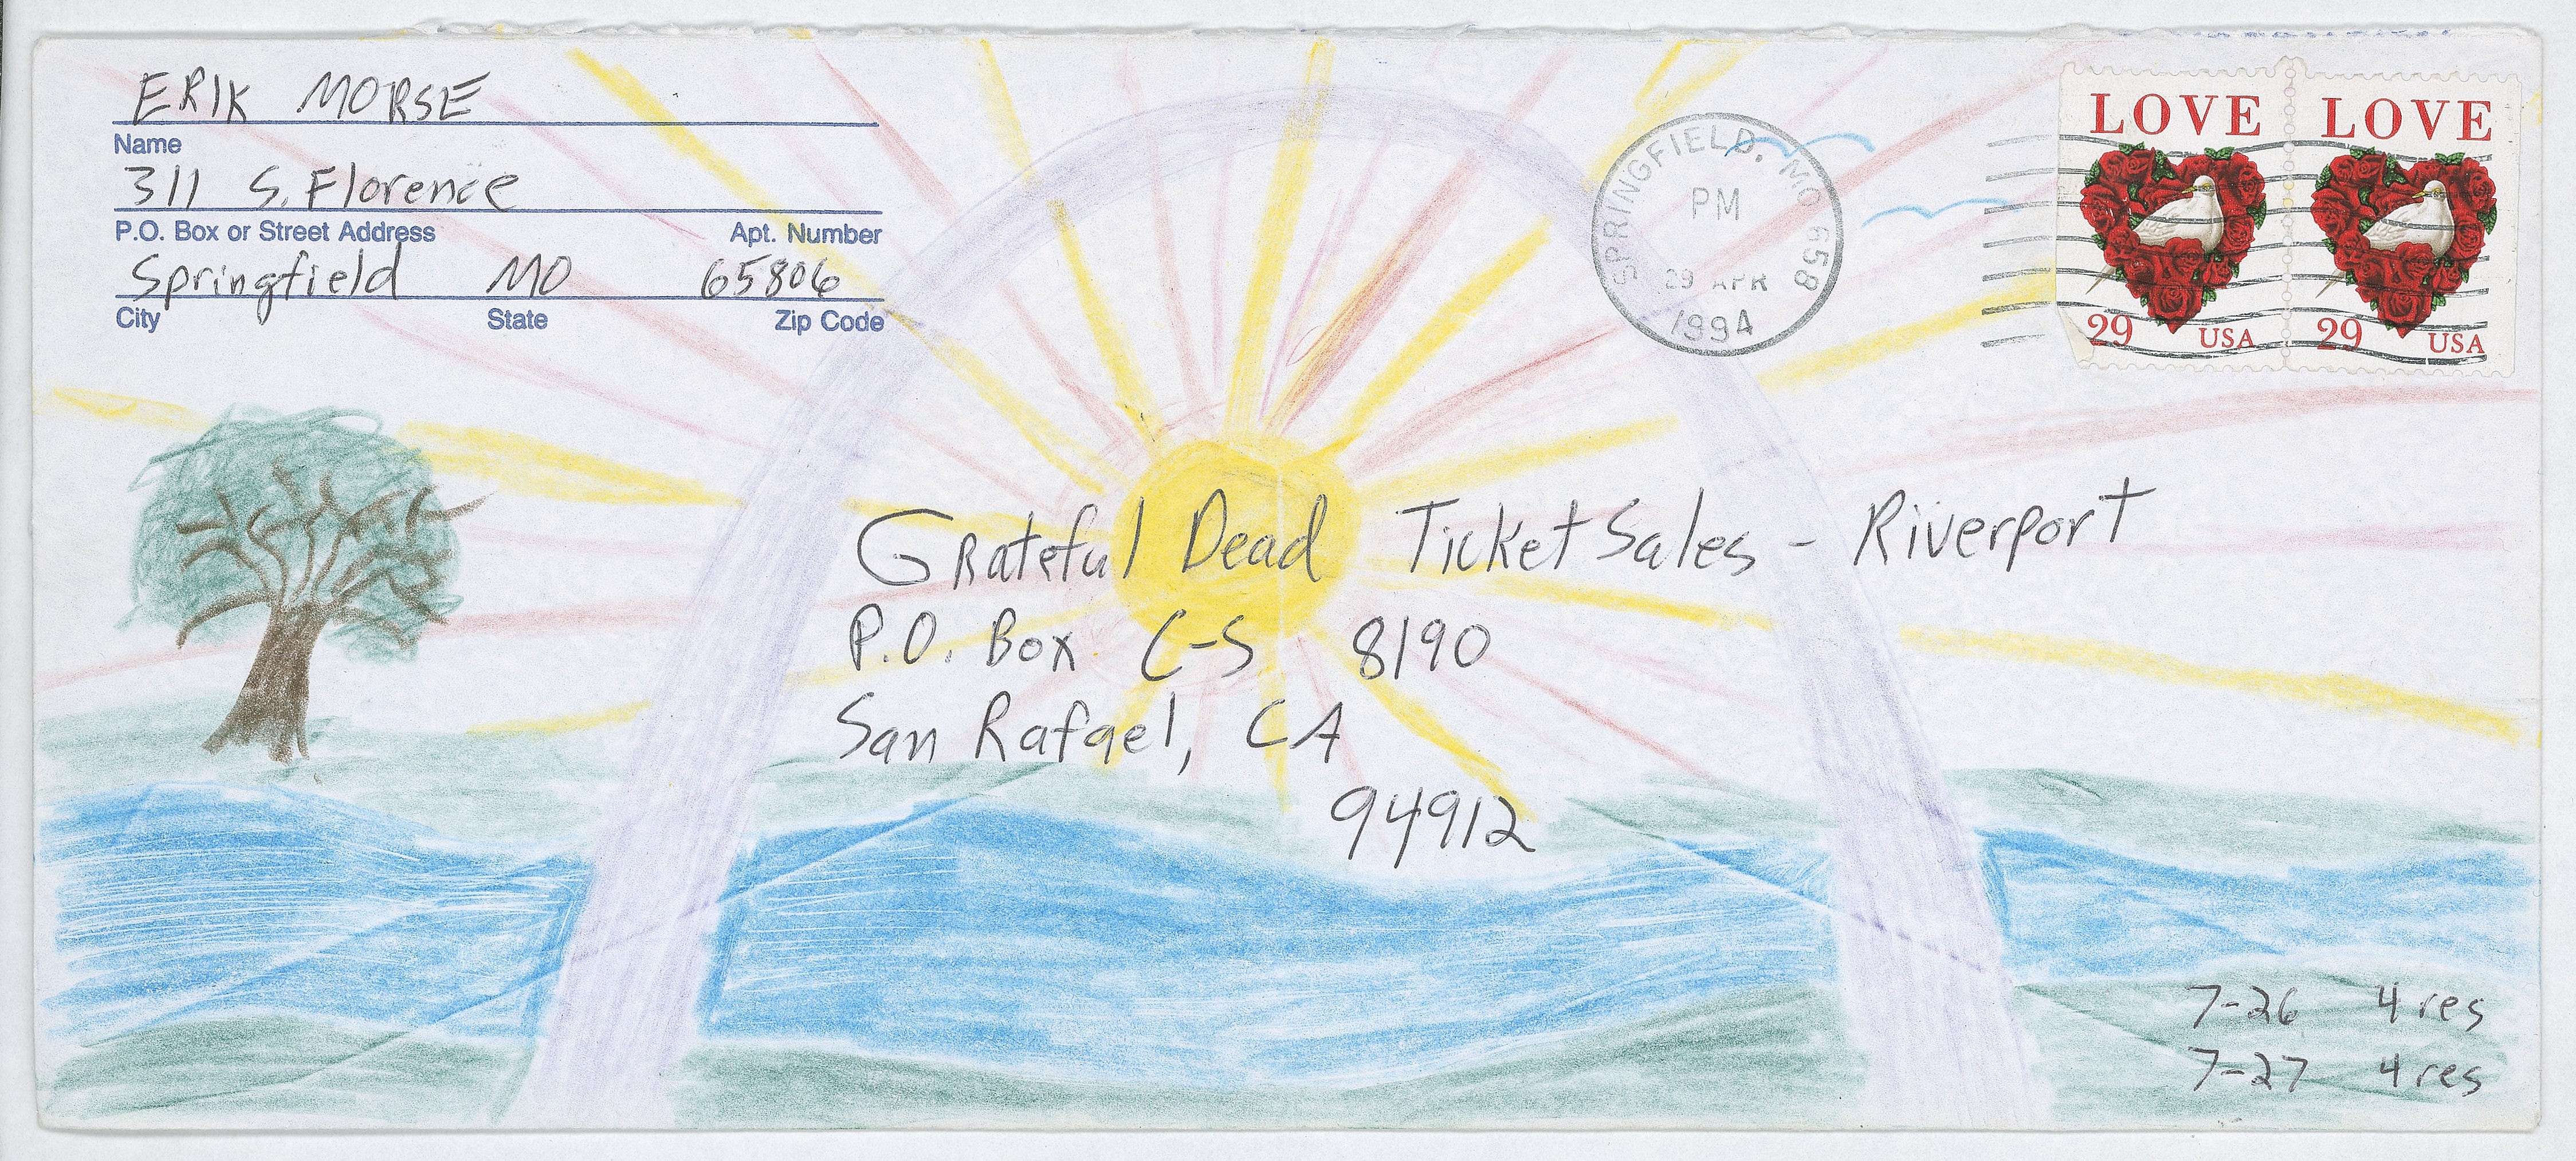 ERIK MORSE
Name
311 S. Florence
P.O. Box or Street Address Apt. Number
Springfield MO 65806
City State Zip Code
SPRINGFIELD, MO 658
PM
29 APR
1994
LOVE LOVE
29 USA 29 USA
Grateful Dead Ticket Sales - Riverport
P.O. Box C-S 8190
San Rafael, CA
94912
7-26 4 res
7-27 4 res